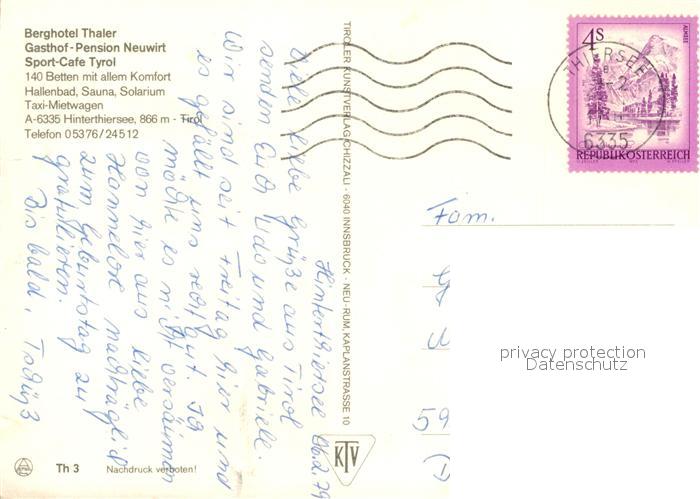 Berghotel Thaler
Gasthof-Pension Neuwirt
Sport-Cafe Tyrol
140 Betten mit allem Komfort
Hallenbad, Sauna, Solarium
Taxi-Mietwagen
A-6335 Hinterthiersee, 866 m - Tirol
Telefon 05376/24512
Hinterthiersee 06.2.79
Viele liebe Grüße aus Tirol
senden Euch Udo und Gabriele.
Wir sind seit Freitag hier und
es gefällt uns recht gut. Ich
möchte es nicht versäumen
von hier aus liebe
Hannelore nachträglich
zum Geburtstag zu
gratulieren.
Bis bald, Tschüß
TIROLER KUNSTVERLAG CHIZZALI · 6040 INNSBRUCK - NEU-RUM, KAPLANSTRASSE 10
KTV
Th 3
Nachdruck verboten!
4S
ALMSEE
REPUBLIK ÖSTERREICH
THIERSEE
6335
Fam.
59
privacy protection
Datenschutz